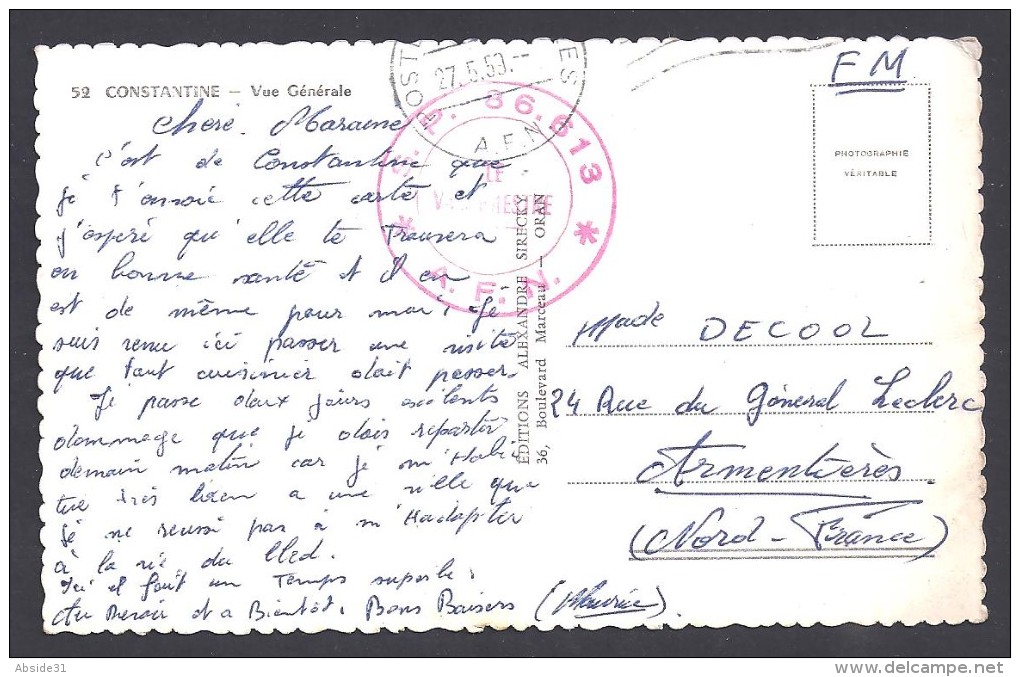 52 CONSTANTINE — Vue Générale
Chere. Maraine
c'est de Constantine que
je t'envoie cette carte et
j'espére qu'elle te Trouvera
en bonne santé et il en
est de même pour moi, Je
suis venu ici passer une visite
que tout cuisinier doit passer.
Je passe deux jours exelents
dommage que je dois repartir
demain matin car je m'Habi
tue très bien a une ville que
je ne reussi pas à m'Hadapter
à la vie du bled.
Ici il fait un Temps superbe.
Au Revoir et a Bientôt. Bons Baisers (Maurice).
POSTE
27.5.59
A.F.N
S.P. 86.613
LE
VAGUEMESTRE
A.F.N.
ÉDITIONS ALEXANDRE SIRECKY
36, Boulevard Marceau — ORAN
FM
PHOTOGRAPHIE
VÉRITABLE
Made DECOOL
24 Rue du Général Leclerc
Armentières.
(Nord - France)
Abside31
delcampe.net